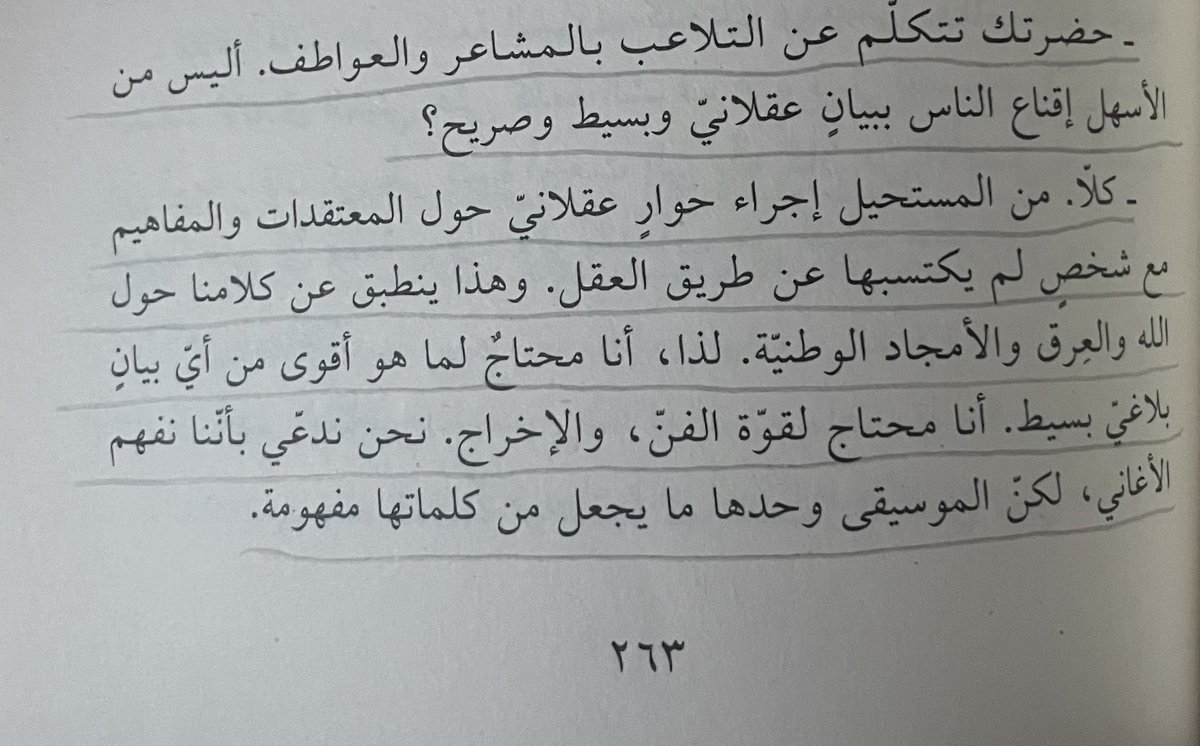 ـ حضرتك تتكلّم عن التلاعب بالمشاعر والعواطف. أليس من
الأسهل إقناع الناس ببيانٍ عقلانيّ وبسيط وصريح؟
ـ كلّا. من المستحيل إجراء حوارٍ عقلانيّ حول المعتقدات والمفاهيم
مع شخصٍ لم يكتسبها عن طريق العقل. وهذا ينطبق عن كلامنا حول
الله والعِرق والأمجاد الوطنيّة. لذا، أنا محتاجٌ لما هو أقوى من أيّ بيانٍ
بلاغيّ بسيط. أنا محتاج لقوّة الفنّ، والإخراج. نحن ندعّي بأنّنا نفهم
الأغاني، لكنّ الموسيقى وحدها ما يجعل من كلماتها مفهومة.
٢٦٣